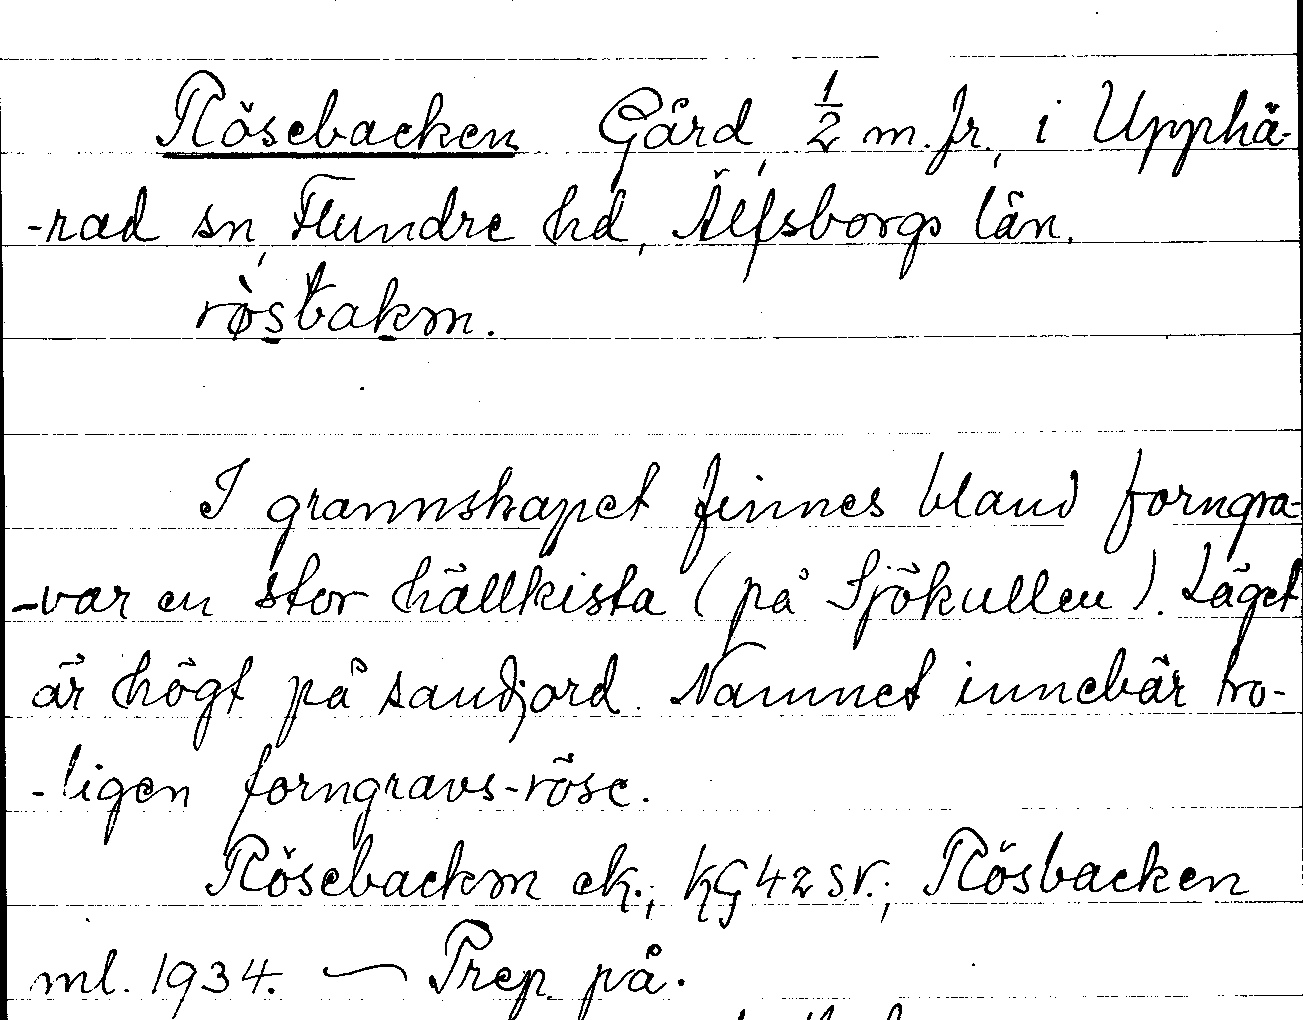 Rösebacken Gård, 1/2 m. fr., i Upphä-
-rad sn, Flundre hd, Älfsborgs län.
røsbakm.
I grannskapet finnes bland forngra-
-var en stor hällkista (på Sjökullen). Läget
är högt på sandjord. Namnet innebär tro-
-ligen forngravs-röse.
Rösebackm ek.; KG 42 sv.; Rösbacken
ml. 1934. — Prep. på.